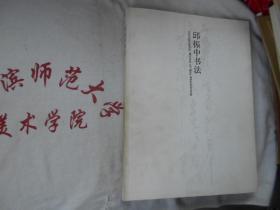 滨师范大学
美术学院
邱振中书法